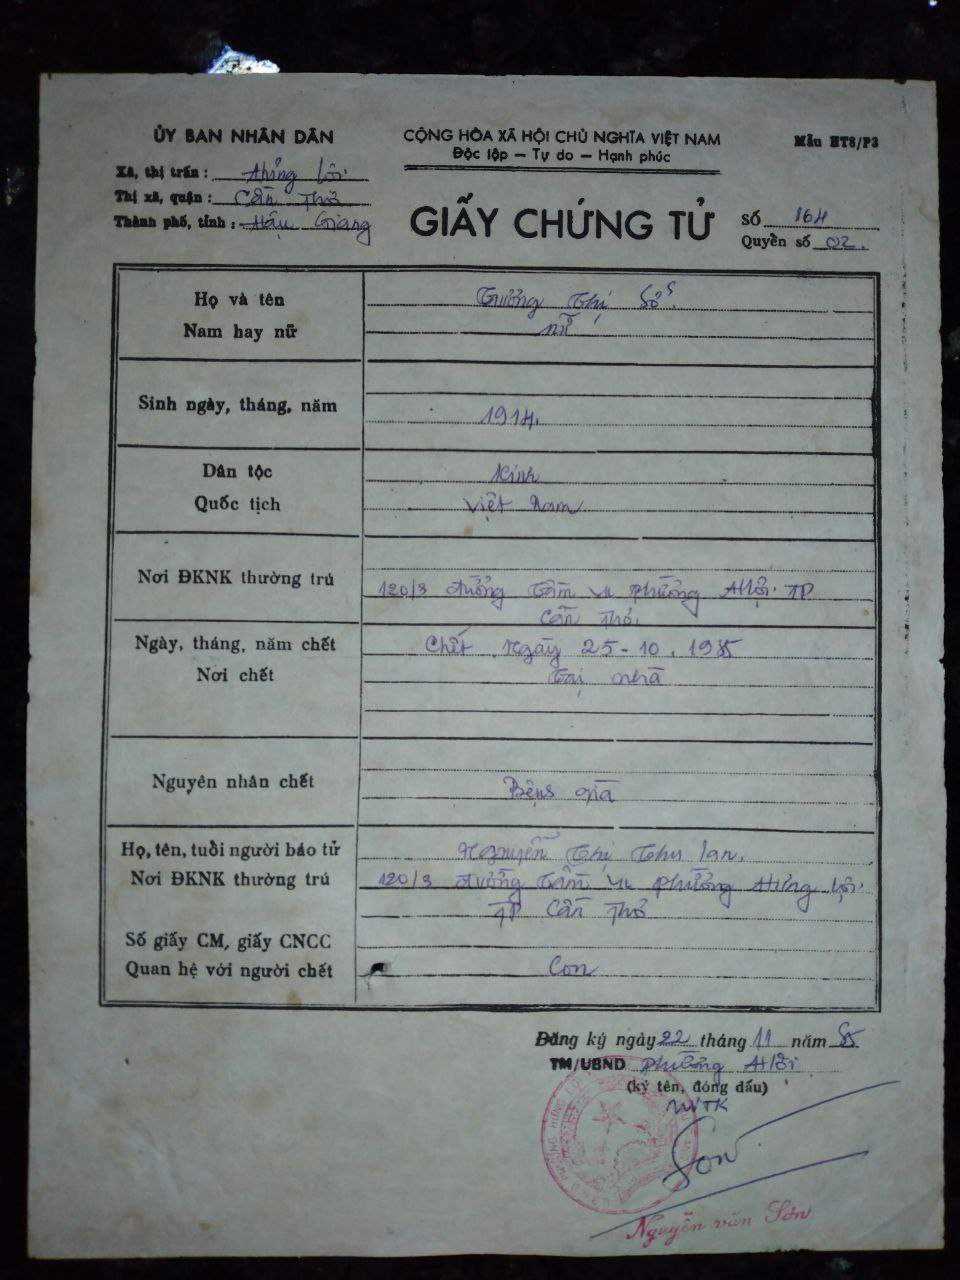 ỦY BAN NHÂN DÂN
Xã, thị trấn : Hưng Lợi
Thị xã, quận : Cần Thơ
Thành phố, tỉnh : Hậu Giang
CỘNG HÒA XÃ HỘI CHỦ NGHĨA VIỆT NAM
Độc lập — Tự do — Hạnh phúc
Mẫu HT8/P3
GIẤY CHỨNG TỬ
Số 164
Quyển số 02.
Họ và tên Trương Thị
Nam hay nữ nữ
Sinh ngày, tháng, năm 1914.
Dân tộc Kinh
Quốc tịch Việt Nam
Nơi ĐKNK thường trú 120/3 đường Tầm Vu phường H Lợi. TP
Cần Thơ.
Ngày, tháng, năm chết Chết ngày 25-10.1985
Nơi chết Tại nhà
Nguyên nhân chết Bệnh già
Họ, tên, tuổi người báo tử Nguyễn Thị Thu Lan.
Nơi ĐKNK thường trú 120/3 đường Tầm Vu phường Hưng Lợi.
TP Cần Thơ
Số giấy CM, giấy CNCC
Quan hệ với người chết Con
Đăng ký ngày 22 tháng 11 năm 85
TM/UBND phường H Lợi
(ký tên, đóng dấu)
UVTK
Sơn
Nguyễn văn Sơn